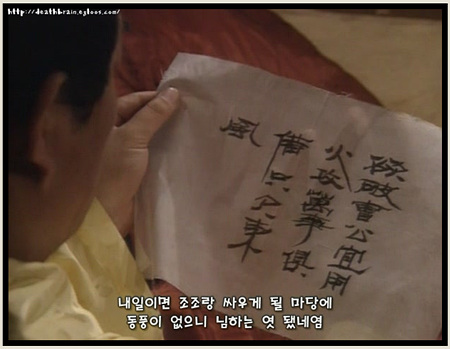 http://deathbrain.egloos.com/
欲破曹公宜用
火攻萬事俱
備只欠東
風
내일이면 조조랑 싸우게 될 마당에
동풍이 없으니 님하는 엿 됐네염